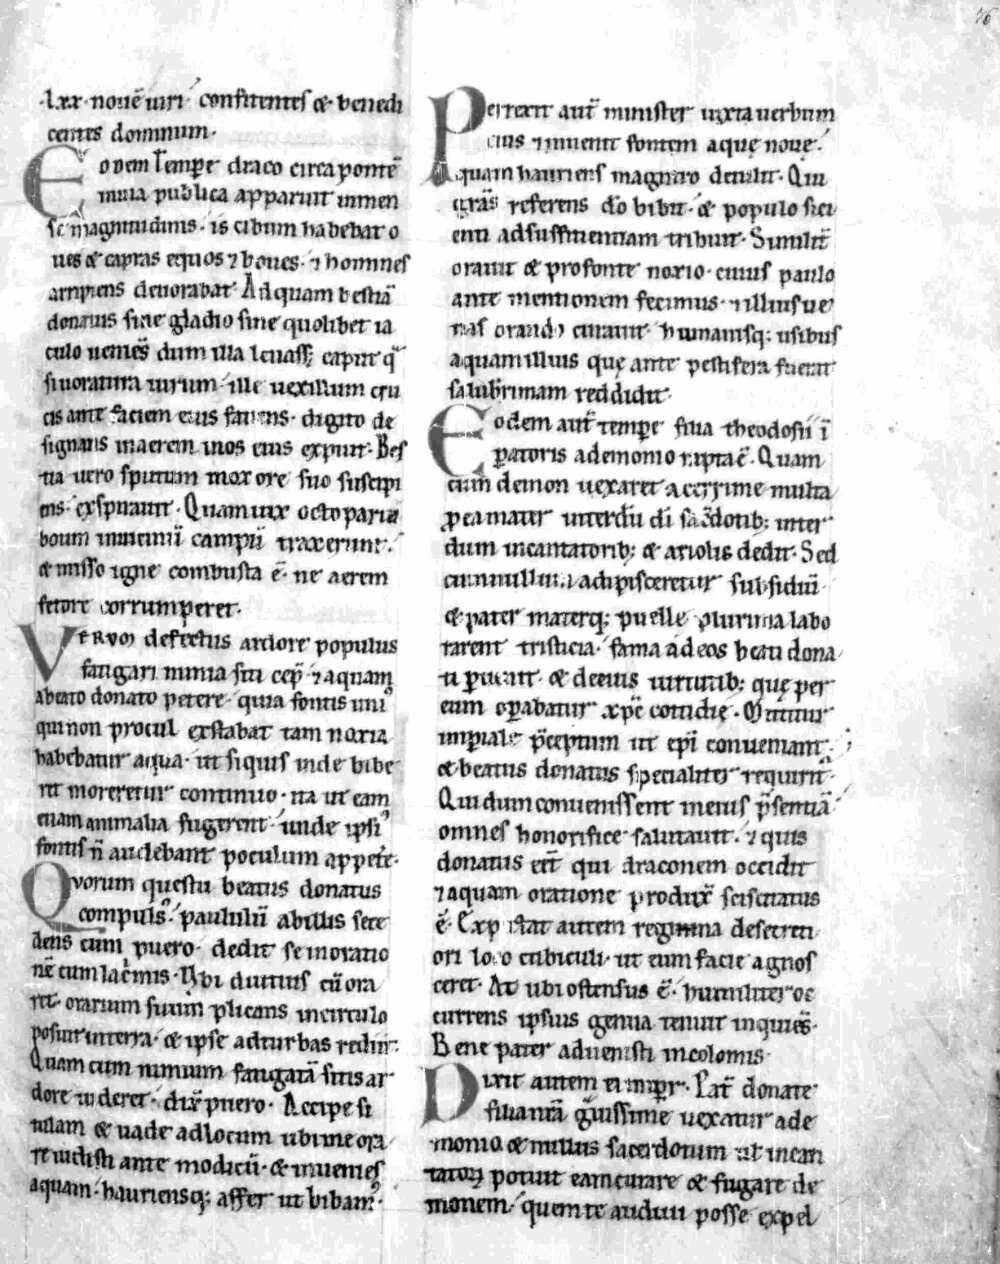 76
.lxx. nouē uiri. confitentes & benedi
centes dominum.
Eodem tempe draco circa pontē
inuia publica apparuit inmen
se magnitudinis. is cibum habebat o
ues & capras equos ⁊ boues. ⁊ homines
arripiens deuorabat. Ad quam bestiā
donatus sine gladio sine quolibet ia
culo ueniēs dum illa leuass& caput q̄
si uoratura uirum. ille uexillum cru
cis ante faciem eius faciens. digito de
signans in aerem in os eius expuit. Bes
tia uero sputum mox ore suo suscipi
ens. exspirauit. Quam uix octo paria
boum in uicinū campū traxerunt.
& misso igne combusta ē. ne aerem
fetore corrumperet.
Vervm defectus ardore populus
fatigari nimia siti cep̄. ⁊ aquam
a beato donato petere. quia fontis uni⁹
qui non procul exstabat tam noxia
habebatur aqua. ut siquis inde bibe
ret moreretur continuo. ita ut eam
etiam animalia fugerent. unde ipsi⁹
fontis n̄ audebant poculum appet̄e.
Qvorum questu beatus donatus
compuls⁹. paululū abillis sece
dens cum puero. dedit se inoratio
nē cum lac̄mis. Vbi diutius cū ora
ret. orarium suum plicans incirculo
posuit interra. & ipse adturbas rediit.
Quam cum nimium fatigatā sitis ar
dore uideret. dix̄ puero. Accipe si
tulam & uade adlocum ubi me ora
re uidisti ante modicū. & inuenies
aquam. hauriensq; affer ut bibam⁹.
Perrexit aut̄ minister iuxta uerbum
eius ⁊ inuenit fontem aquę nouę.
quam hauriens magistro detulit. Qui
grās referens dō bibit. & populo siti
enti adsufficientiam tribuit. Similit̄
orauit & pro fonte noxio. cuius paulo
ante mentionem fecimus. ⁊ illius ue
nas orando curauit. humanisq; usibus
aquam illius quę ante pestifera fuerat
saluberrimam reddidit.
Eodem aut̄ tempe filia theodosii ī
ꝑatoris ademonio rapta ē. Quam
cum demon uexaret acerrime multa
ꝓ ea mater interdū di sac̄dotib; inter
dum incantatorib; & ariolis dedit. Sed
cum nullum adipisceretur subsidiū.
& pater materq; puellę plurima labo
rarent tristicia. fama ad eos beati dona
ti ꝑuenit. & de eius uirtutib; quę per
eum oꝑabatur xpc̄ cotidię. Mittitur
imperiale p̄ceptum ut epī conueniant.
& beatus donatus specialiter requirit᷑.
Qui dum conuenissent in eius p̄sentiā
omnes honorifice salutauit. ⁊ quis
donatus eēt qui draconem occidit
⁊ aquam oratione produx̄ sciscitatus
ē. Exp&tat autem regina desecreti
ori loco cubiculi. ut eum facie agnos
ceret. At ubi ostensus ē. humiliter oc
currens ipsius genua tenuit inquiēs.
Bene pater aduenisti incolomis.
Dixit autem ei impr̄. Pat̄ donate
filia mā g̃uissime uexatur a de
monio & nullus sacerdotum ut incan
tatoꝝ potuit eam curare & fugare de
monem. quem te audiui posse expel